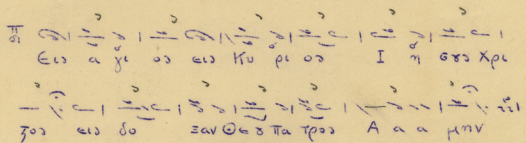 Εις α γι ος εις Κυ ρι ος Ι η σους Χρι
στος εις δο ξαν Θεου πα τρος Α α α μην